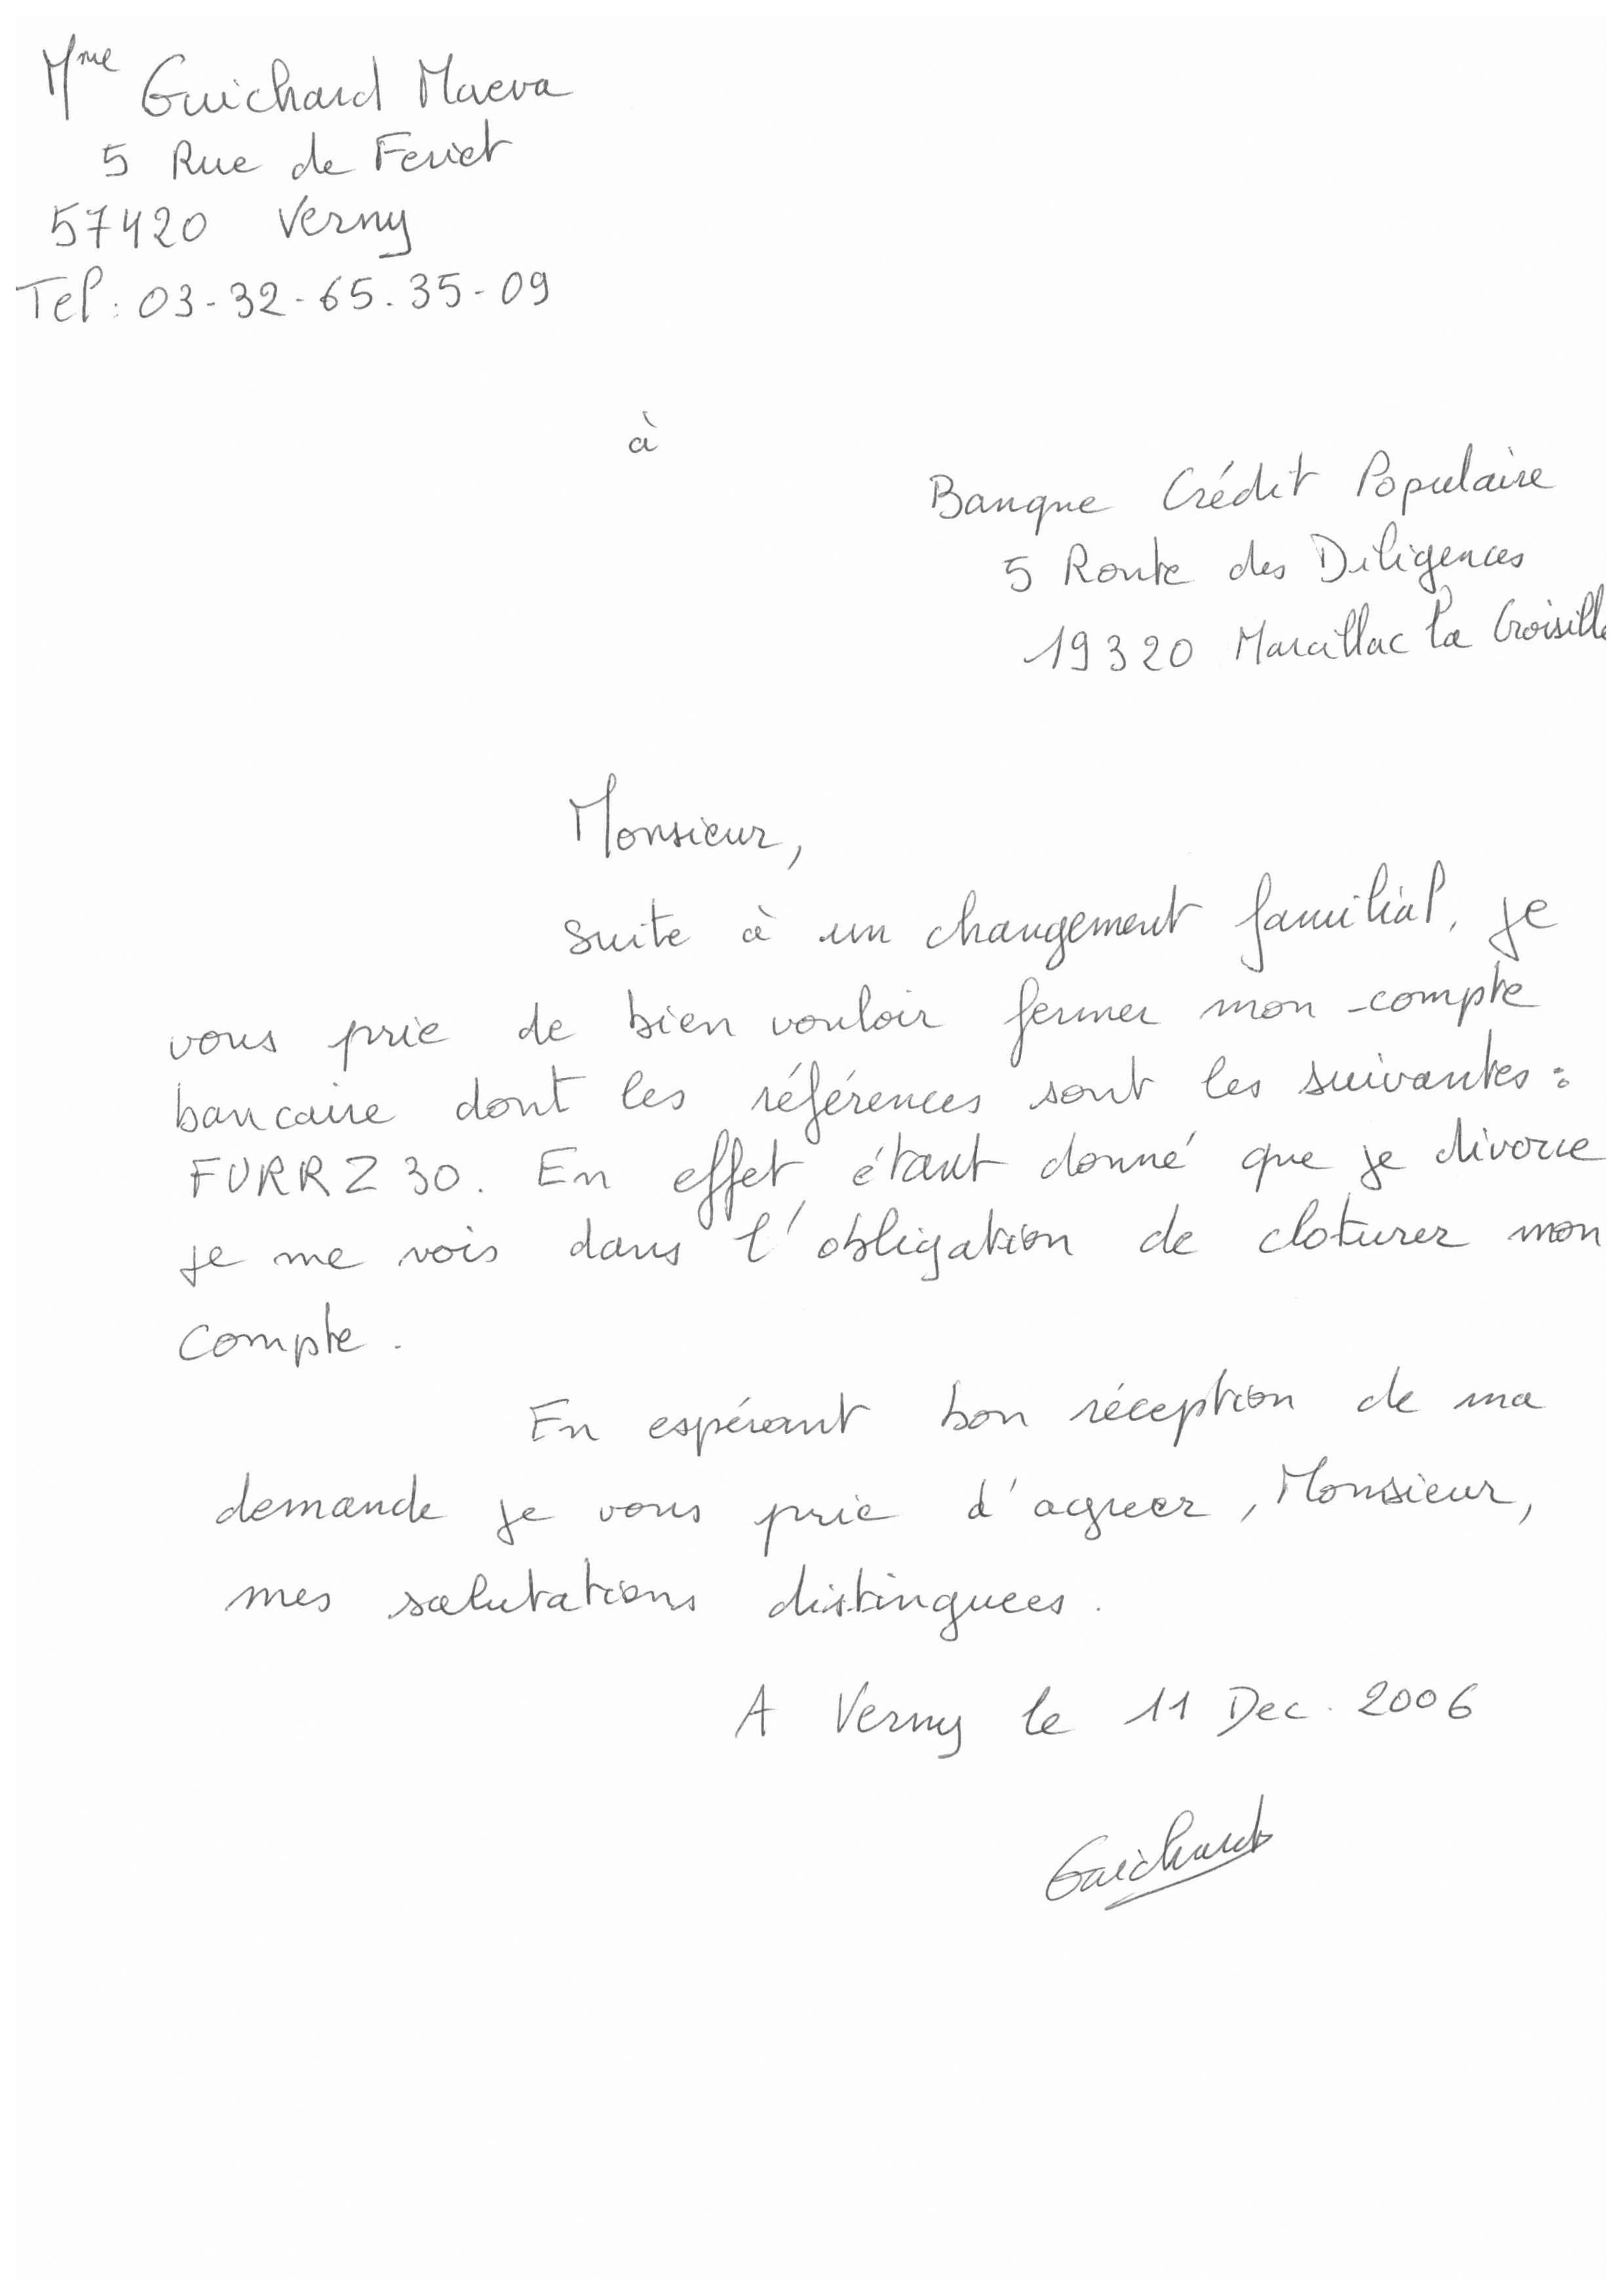 Mme Guichard Maeva
5 Rue de Feriet
57420 Verny
Tel : 03-32-65.35-09
à
Banque Crédit Populaire
5 Route des Diligences
19320 Marcillac la Croisille
Monsieur,
suite à un changement familial, je
vous prie de bien vouloir fermer mon compte
bancaire dont les références sont les suivantes :
FURRZ30. En effet étant donné que je divorce
je me vois dans l'obligation de cloturer mon
compte.
En espérant bon réception de ma
demande je vous prie d'agreer, Monsieur,
mes salutations distinguees.
A Verny le 11 Dec. 2006
Guichard